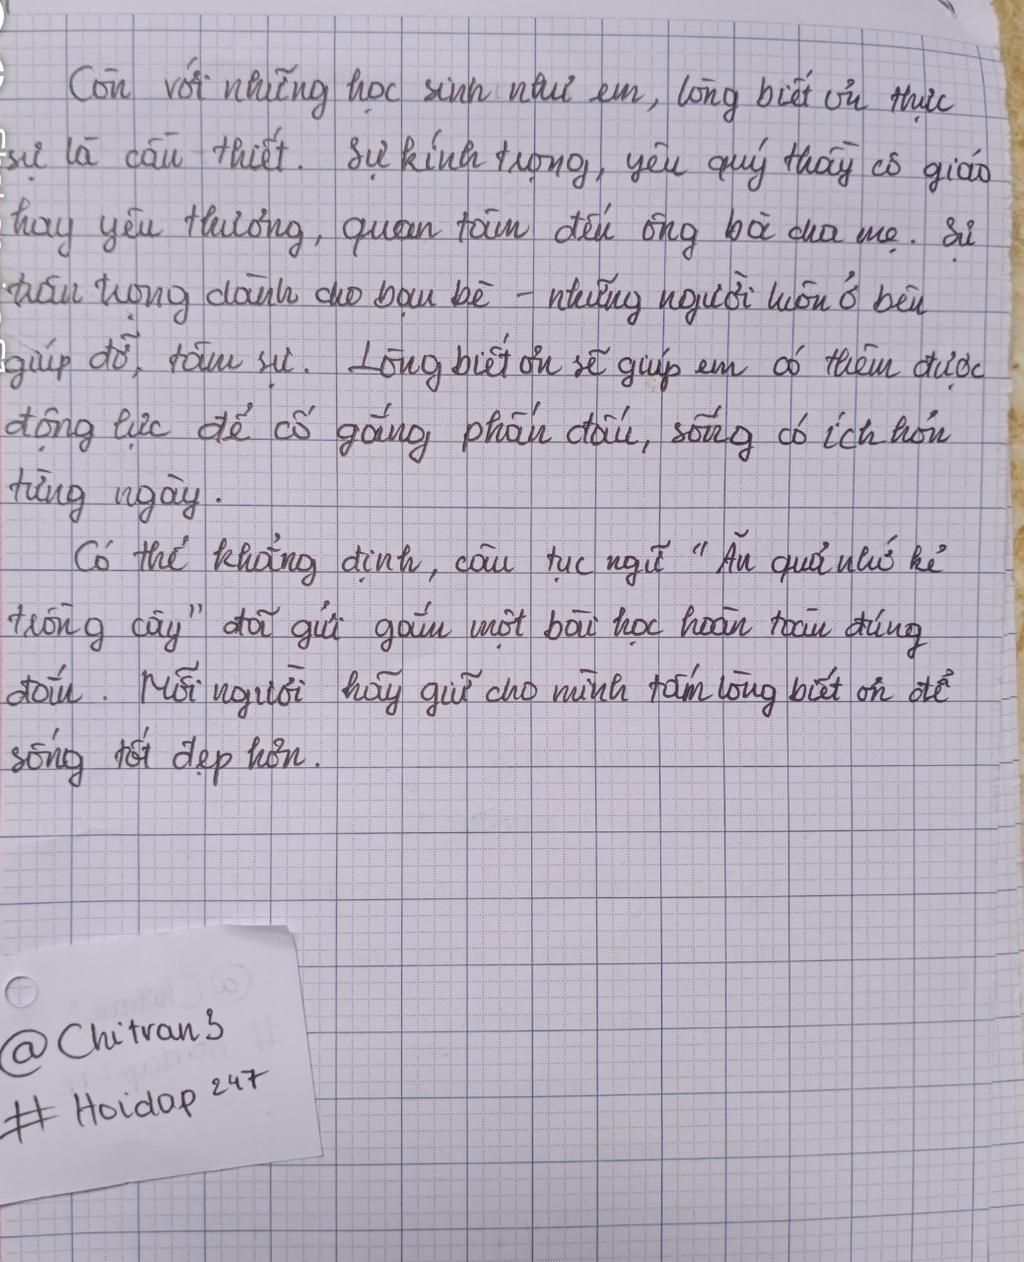 Còn với những học sinh như em, lòng biết ơn thực
sự là cần thiết. Sự kính trọng, yêu quý thầy cô giáo
hay yêu thương, quan tâm đến ông bà cha mẹ. Sự
trân trọng dành cho bạn bè - những người luôn ở bên
giúp đỡ, tâm sự. Lòng biết ơn sẽ giúp em có thêm được
động lực để cố gắng phấn đấu, sống có ích hơn
từng ngày.
Có thể khẳng định, câu tục ngữ "Ăn quả nhớ kẻ
trồng cây" đã gửi gắm một bài học hoàn toàn đúng
đắn. Mỗi người hãy giữ cho mình tấm lòng biết ơn để
sống tốt đẹp hơn.
@Chitran3
# Hoidap 247